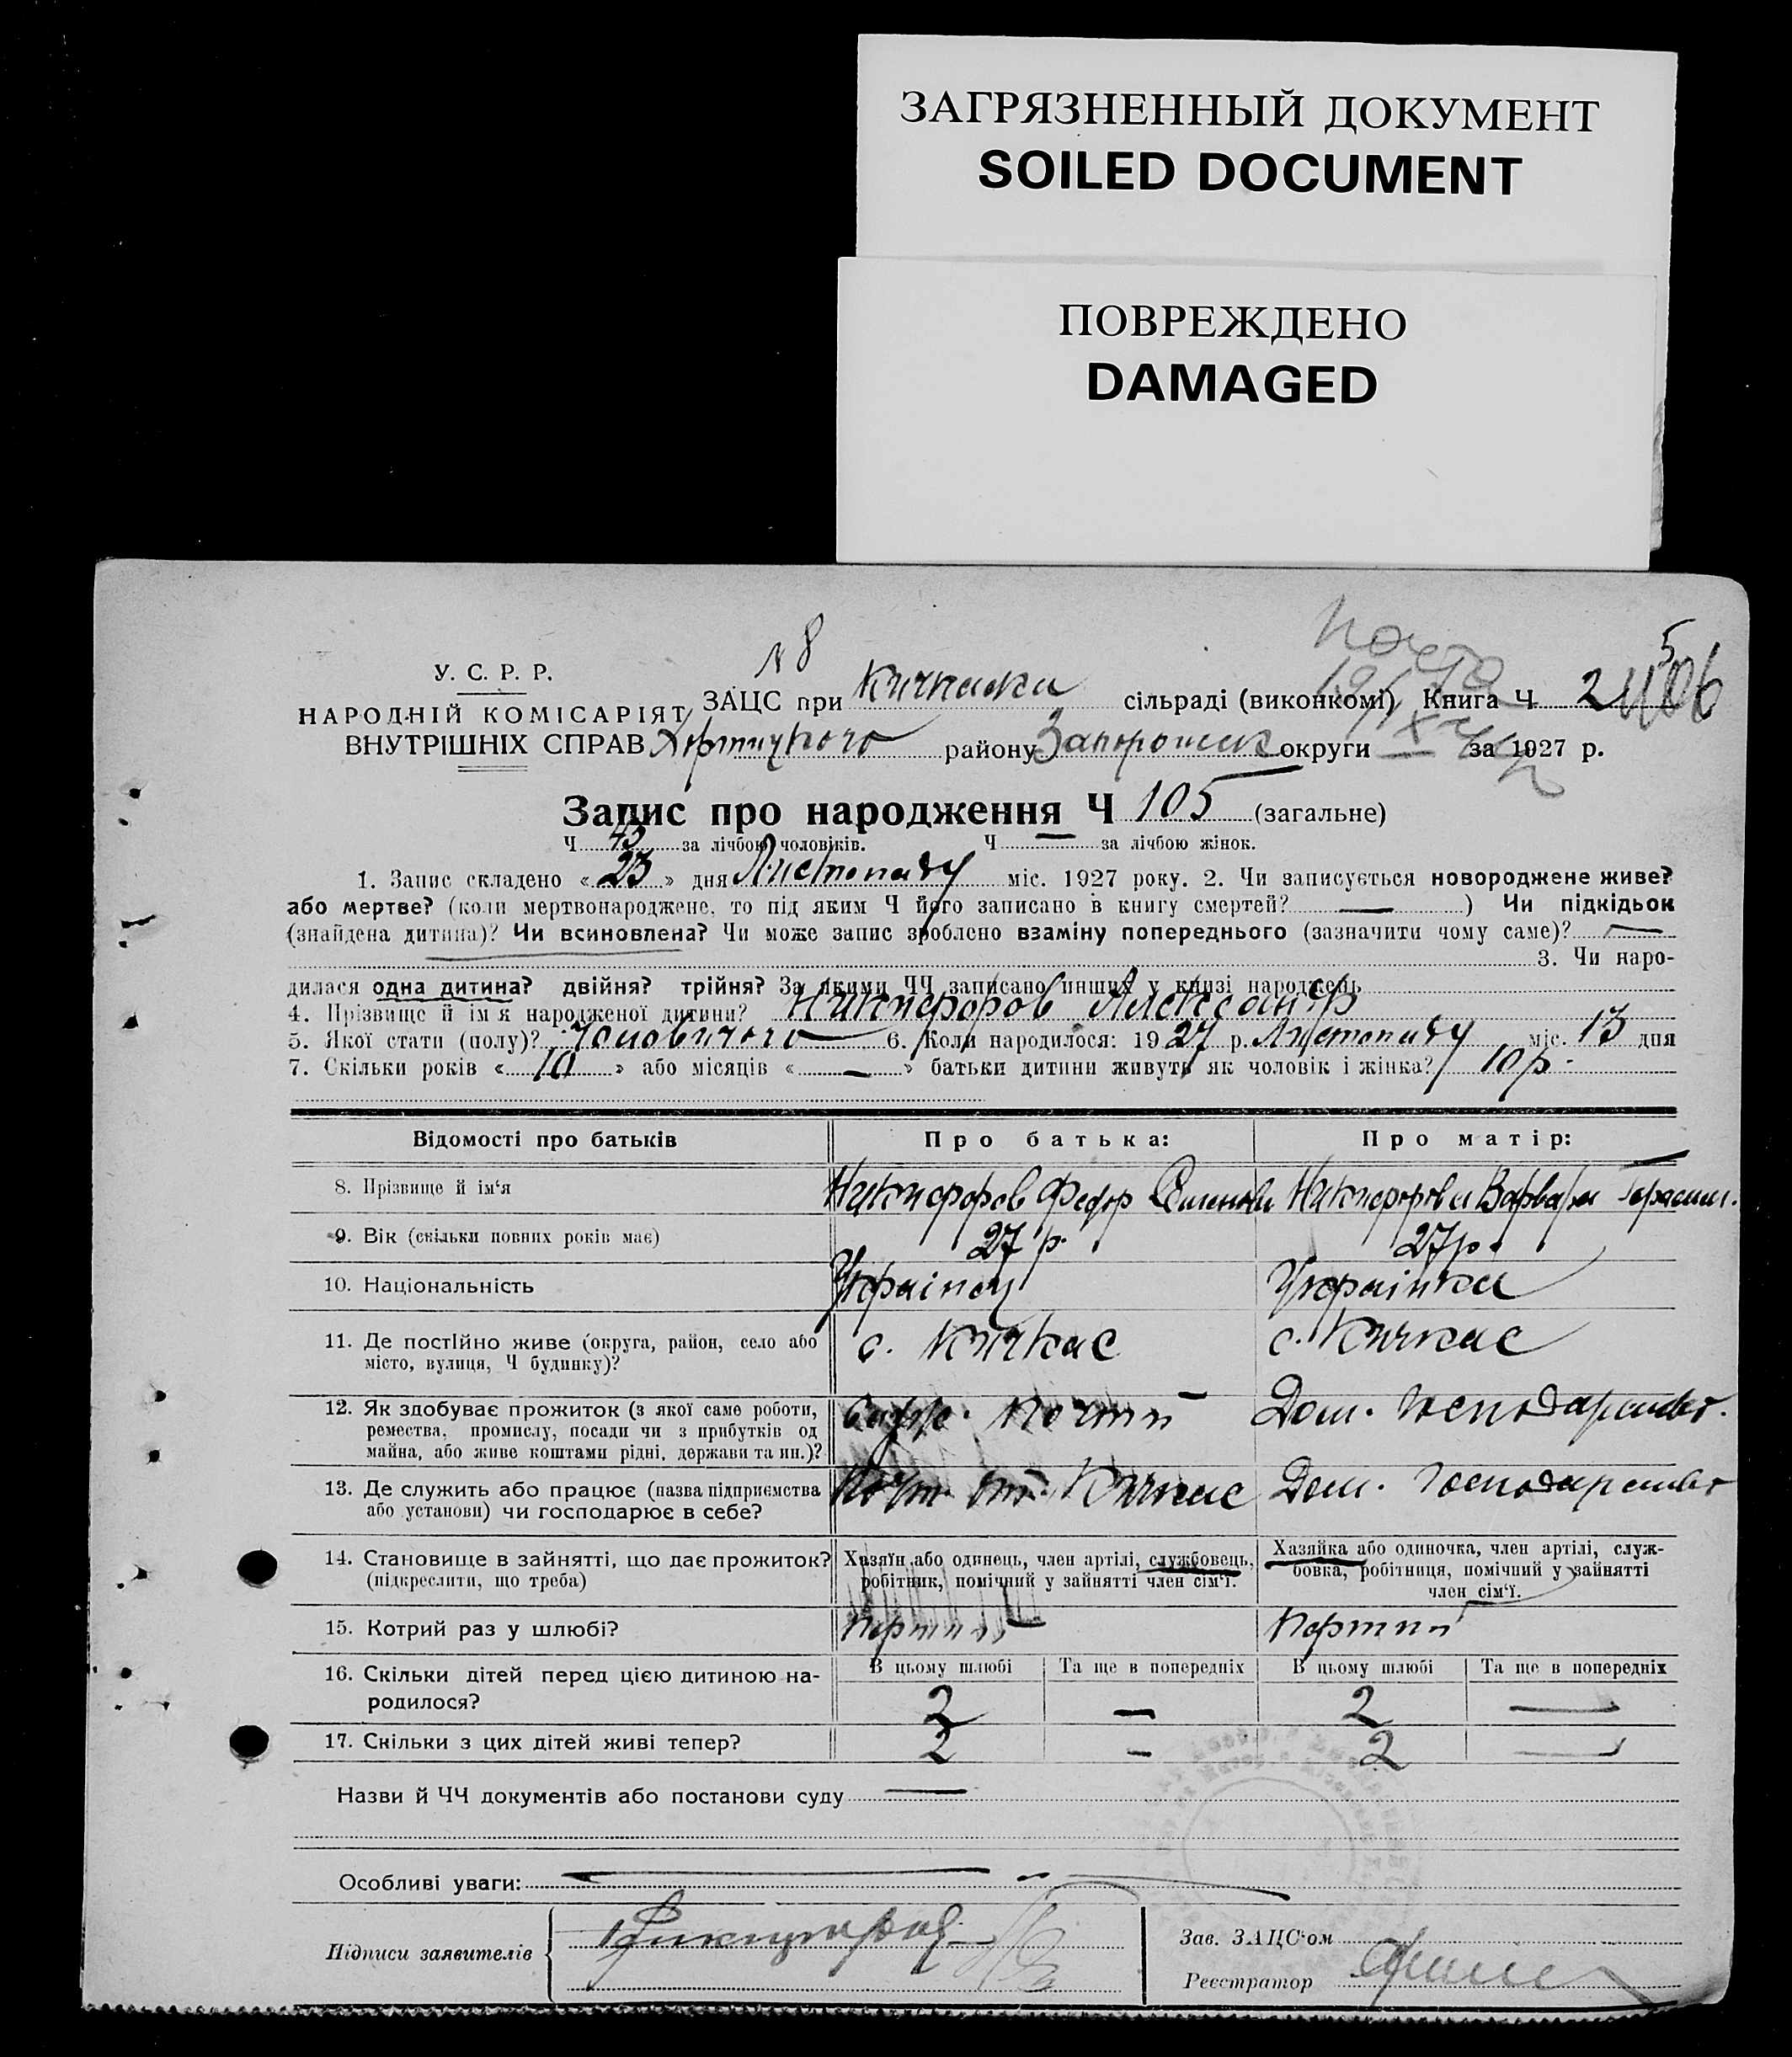 ЗАГРЯЗНЕННЫЙ ДОКУМЕНТ
SOILED DOCUMENT
ПОВРЕЖДЕНО
DAMAGED
№ 8
У. С. Р. Р.
НАРОДНІЙ КОМІСАРІЯТ
ВНУТРІШНІХ СПРАВ
ЗАЦС при Кичкаска сільраді (виконкомі) Книга Ч 2
Хортицького району Запорожск округи за 1927 р.
Запис про народження Ч 105 (загальне)
Ч 43 за лічбою чоловіків. Ч — за лічбою жінок.
1. Запис складено « 23 » дня Листопаду міс. 1927 року. 2. Чи записується новороджене живе?
або мертве? (коли мертвонароджене, то під яким Ч його записано в книгу смертей? — ) Чи підкідьок
(знайдена дитина)? Чи всиновлена? Чи може запис зроблено взаміну попереднього (зазначити чому саме)? —
3. Чи наро-
дилася одна дитина? двійня? трійня? За якими ЧЧ записано инших у книзі народжень
4. Прізвище й ім'я народженої дитини? Никифоров Александр
5. Якої стати (полу)? Чоловичого 6. Коли народилося: 1927 р. Листопаду міс. 13 дня
7. Скільки років « 10 » або місяців « — » батьки дитини живуть як чоловік і жінка? 10 р.
Відомості про батьків Про батька: Про матір:
8. Прізвище й ім'я Никифоров Федор Никифорова Варвара Герасим.
9. Вік (скільки повних років має) 27 р. 27 р.
10. Національність Украінец Украінка
11. Де постійно живе (округа, район, село або
місто, вулиця, Ч будинку)? с. Кичкас с. Кичкас
12. Як здобуває прожиток (з якої саме роботи,
ремества, промислу, посади чи з прибутків од
майна, або живе коштами рідні, держави та ин.)? почти Дом. господарство.
13. Де служить або працює (назва підприємства
або установи) чи господарює в себе? Почт. от. Кичкас Дом. господарство
14. Становище в зайнятті, що дає прожиток?
(підкреслити, що треба)
Хазяїн або одинець, член артілі, службовець,
робітник, помічний у зайнятті член сім'ї.
Хазяйка або одиночка, член артілі, служ-
бовка, робітниця, помічний у зайнятті
член сім'ї.
15. Котрий раз у шлюбі? Перший Перший
16. Скільки дітей перед цією дитиною на-
родилося?
В цьому шлюбі Та ще в попередніх В цьому шлюбі Та ще в попередніх
2 — 2 —
17. Скільки з цих дітей живі тепер? 2 — 2 —
Назви й ЧЧ документів або постанови суду —
Особливі уваги:
Підписи заявителів
Зав. ЗАЦС'ом
Реєстратор